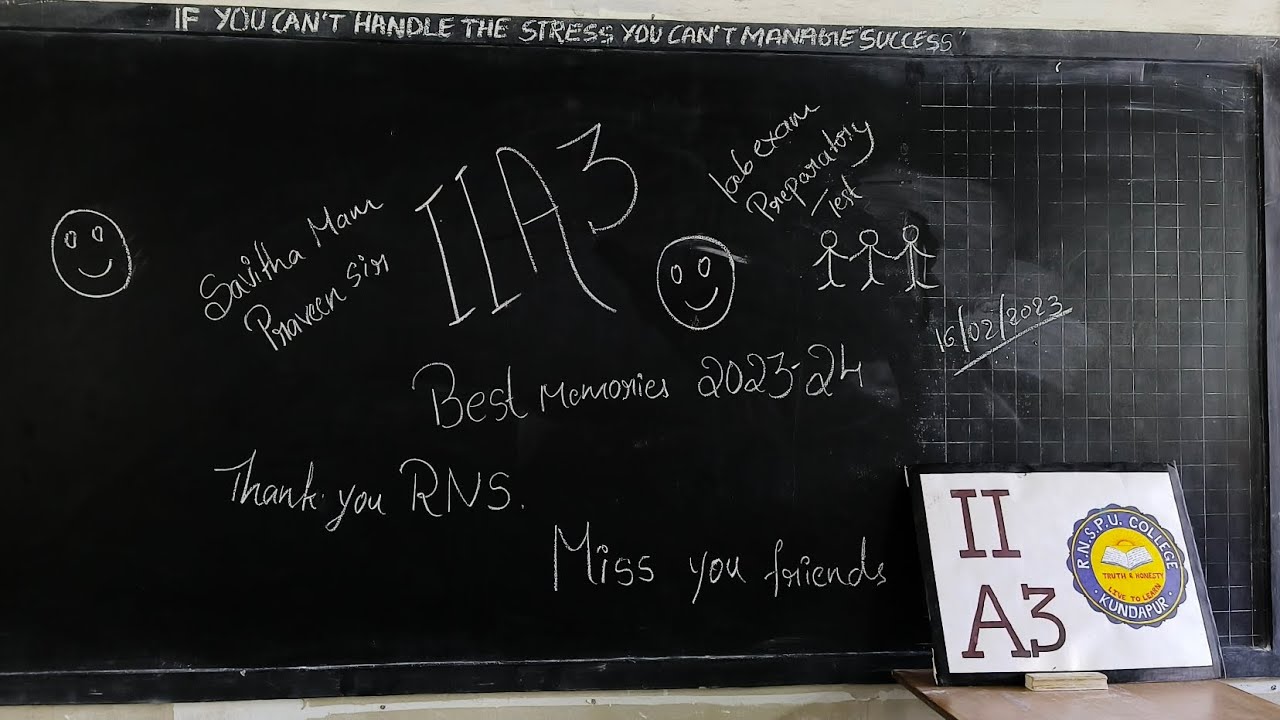 IF YOU CAN'T HANDLE THE STRESS YOU CAN'T MANAGE SUCCESS
Savitha Mam
Praveen sir
IIA3
Lab exam
Preparatory
Test
16/02/2023
Best Memories 2023-24
Thank you RNS.
Miss you friends
II
A3
R.N.S.P.U. COLLEGE
TRUTH & HONESTY
LIVE TO LEARN
KUNDAPUR